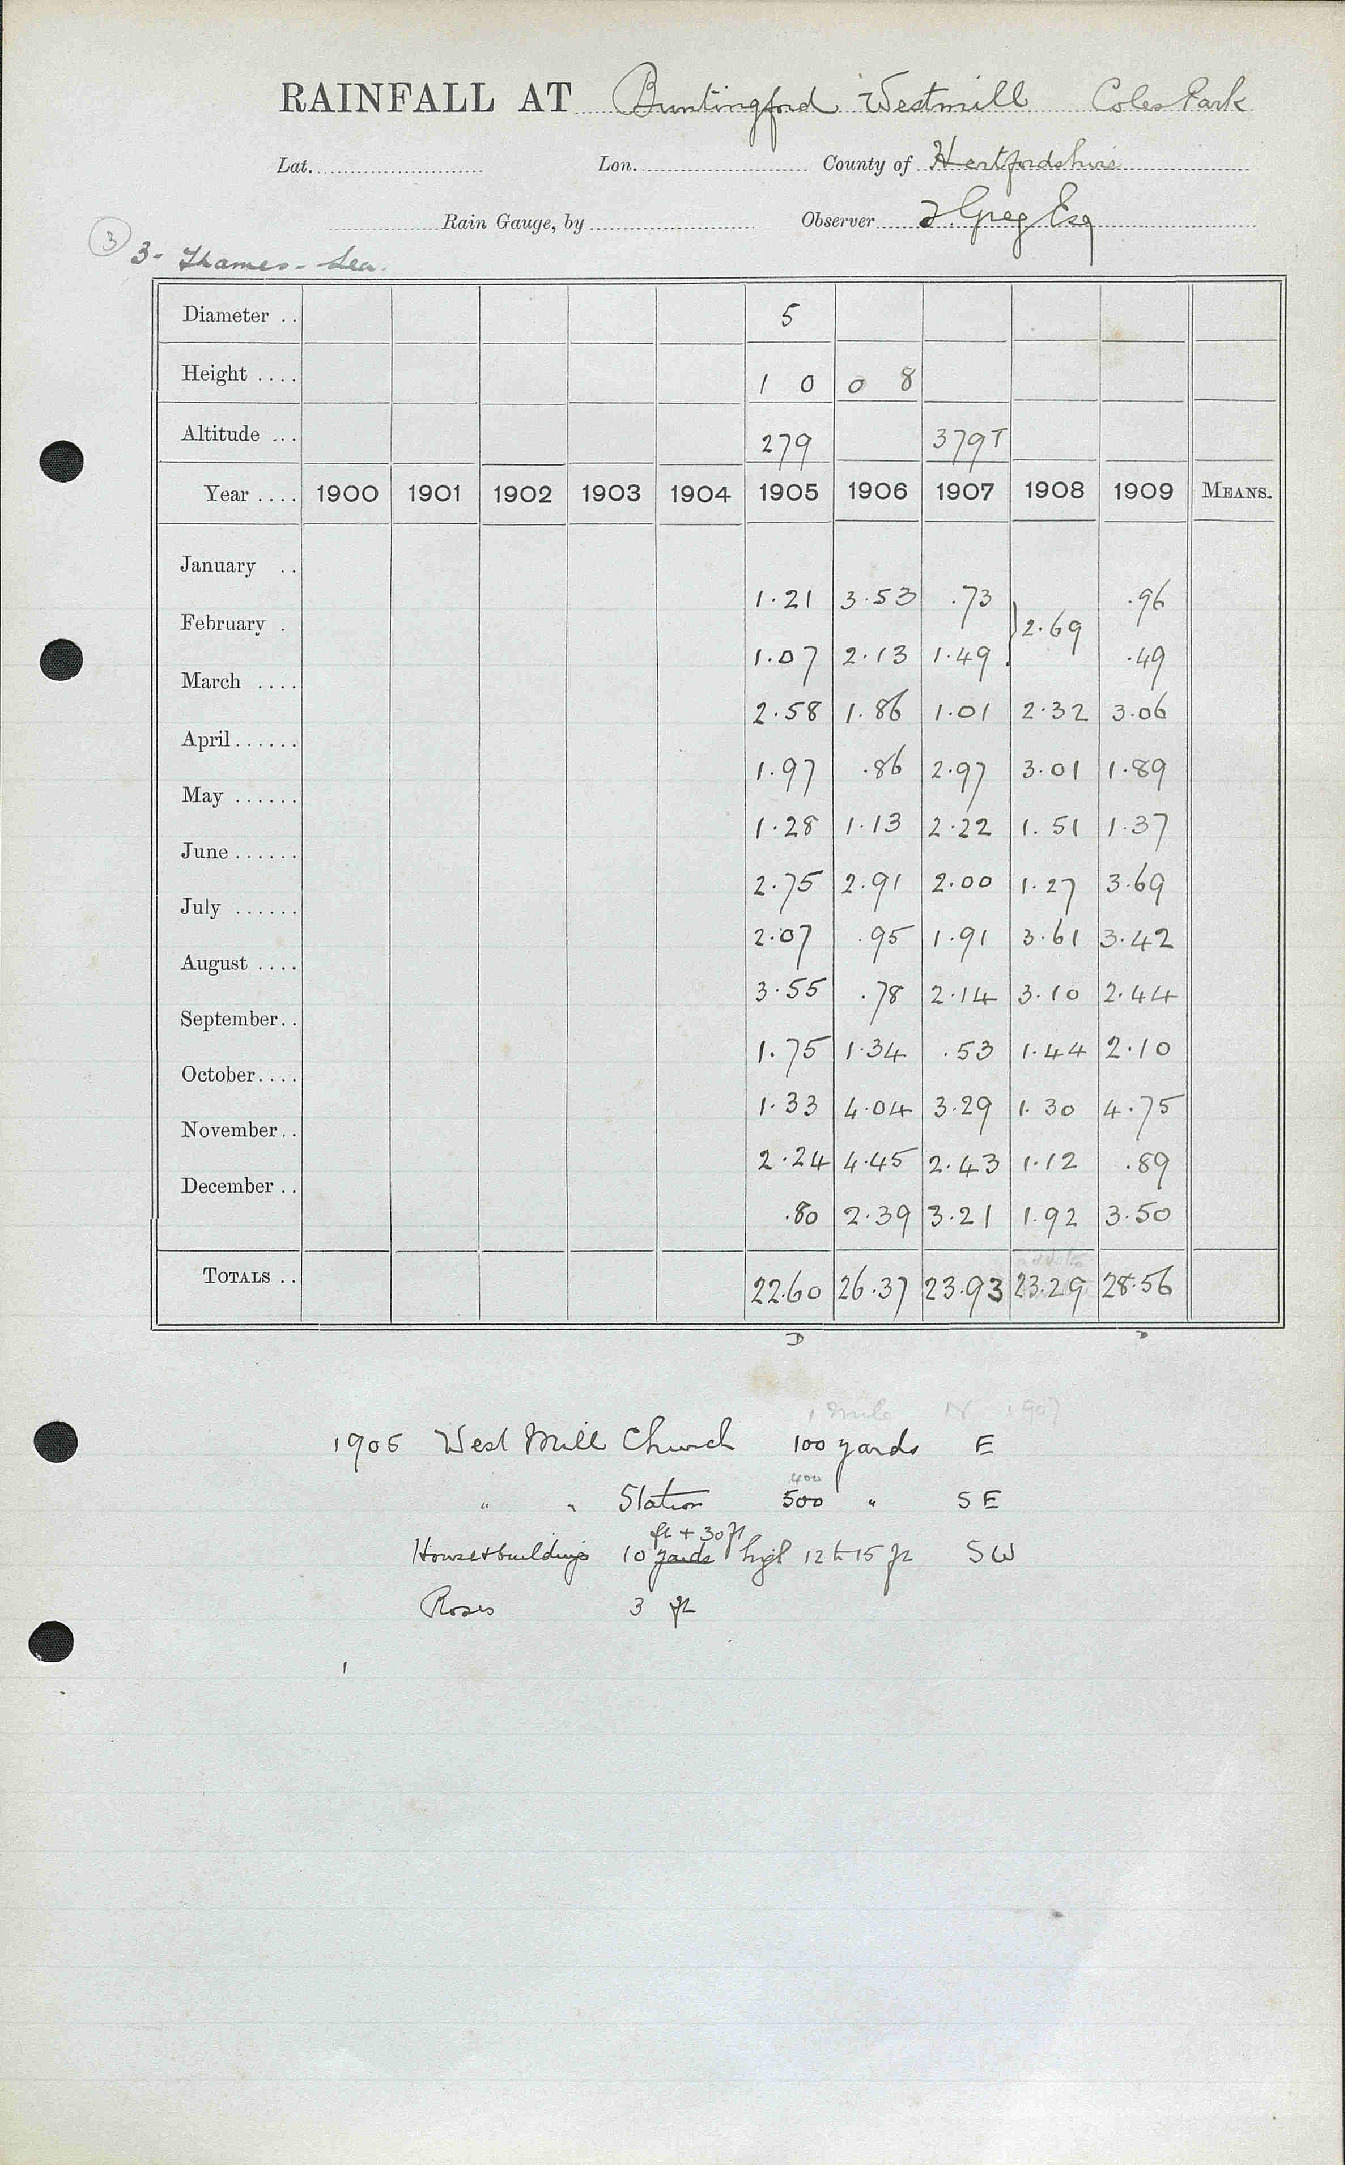 RAINFALL AT Buntingford Westmill Coles Park
Lat. Lon. County of Hertfordshire
Rain Gauge, by Observer Greg Esq
3
3 - Thames - Lea.
Diameter .. 5
Height .... 1 0 0 8
Altitude ... 279 379T
Year .... 1900 1901 1902 1903 1904 1905 1906 1907 1908 1909 MEANS.
January .. 1.21 3.53 .73 .96
February . 1.07 2.13 1.49 } 2.69 .49
March .... 2.58 1.86 1.01 2.32 3.06
April ...... 1.97 .86 2.97 3.01 1.89
May ...... 1.28 1.13 2.22 1.51 1.37
June ...... 2.75 2.91 2.00 1.27 3.69
July ...... 2.07 .95 1.91 3.61 3.42
August .... 3.55 .78 2.14 3.10 2.44
September .. 1.75 1.34 .53 1.44 2.10
October .... 1.33 4.04 3.29 1.30 4.75
November .. 2.24 4.45 2.43 1.12 .89
December .. .80 2.39 3.21 1.92 3.50
TOTALS .. 22.60 26.37 23.93 23.29 28.56
D
1 mile N 1907
1905 West Mill Church 100 yards E
400
" " Station 500 " SE
ft + 30 ft
House & buildings 10 yards high 12 to 15 ft SW
Roses 3 ft